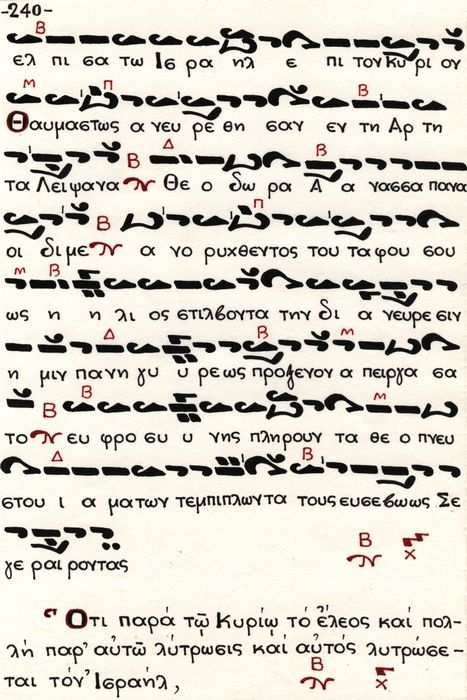 -240-
ελ πι σα τω Ισ ρα ηλ ε πι τον Κυ ρι ον
Θαυμαστως α νευ ρε θη σαν εν τη Αρ τη
τα Λειψανα Θε ο δω ρα Α α νασσα πανα
οι δι με α νο ρυχθεντος του ταφου σου
ως η η λι ος στιλβοντα την δι α νευρε σιν
η μιν πανη γυ υ ρε ως προξενον α πειργα σα
το ευ φρο συ υ νης πληρουν τα θε ο πνευ
στου ι α ματων τ εμπιπλωντα τους ευσεβως Σε
γε ραι ροντας
Ὅτι παρά τῷ Κυρίῳ τό ἔλεος καί πολ-
λή παρ' αὐτῷ λύτρωσις καί αὐτός λυτρώσε-
ται τόν Ἰσραήλ,